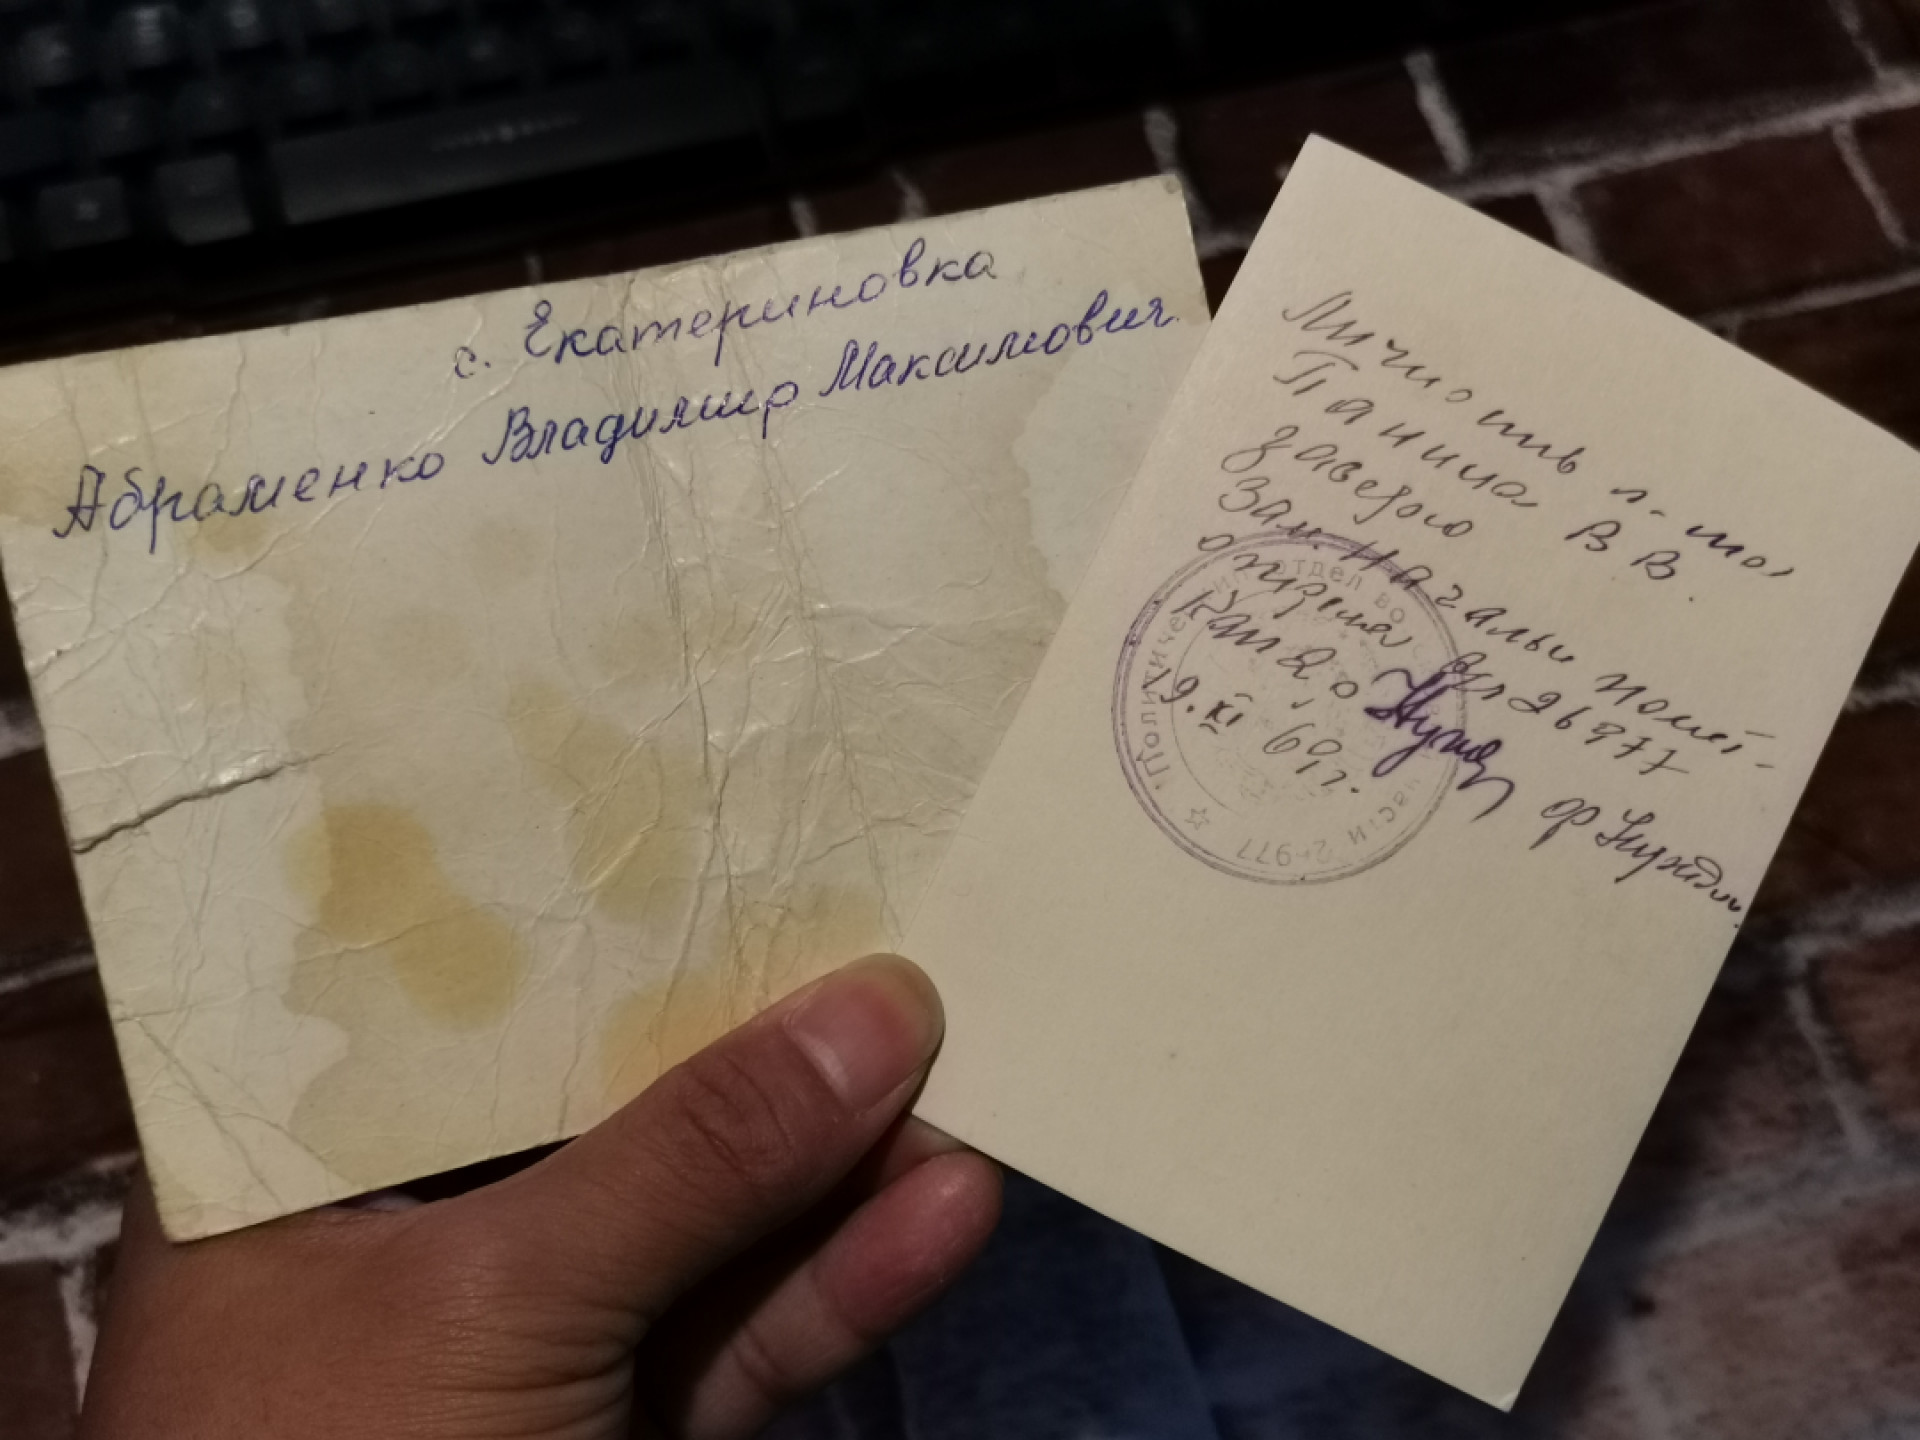 с. Екатериновка
Абраменко Владимир Максимович
Личность л-та
Панина В В.
заверяю
Зам. начальн полит-
отдела в/ч 2977
9. XI 69 г.
Политический отдел во части 2977